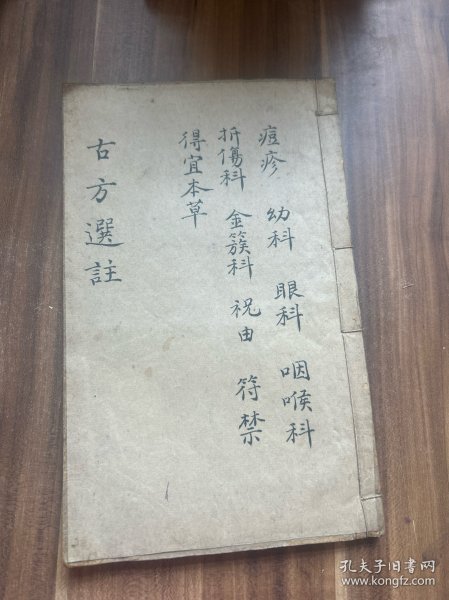 痘疹 幼科 眼科 咽喉科
折傷科 金簇科 祝由 符禁
得宜本草
古方選註
孔夫子旧書网
www.kongfz.com